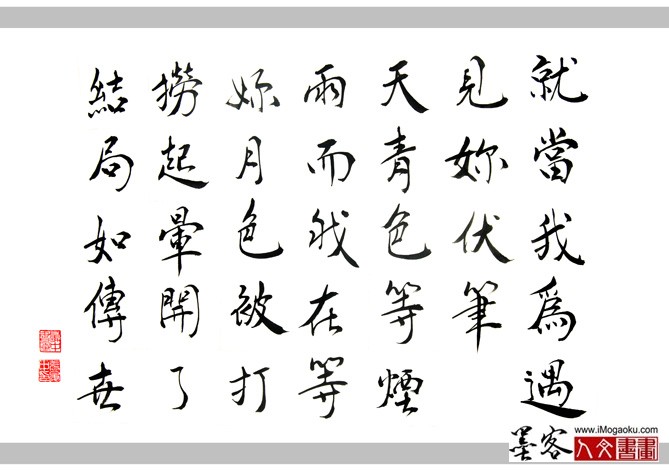 就當我為遇
見妳伏筆
天青色等煙
雨而我在等
妳月色被打
撈起暈開了
結局如傳世
www.iMogaoku.com
墨客
人文書畫